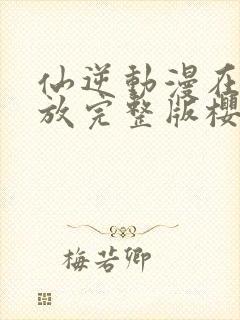 仙逆動漫在
放完整版櫻
梅若卿